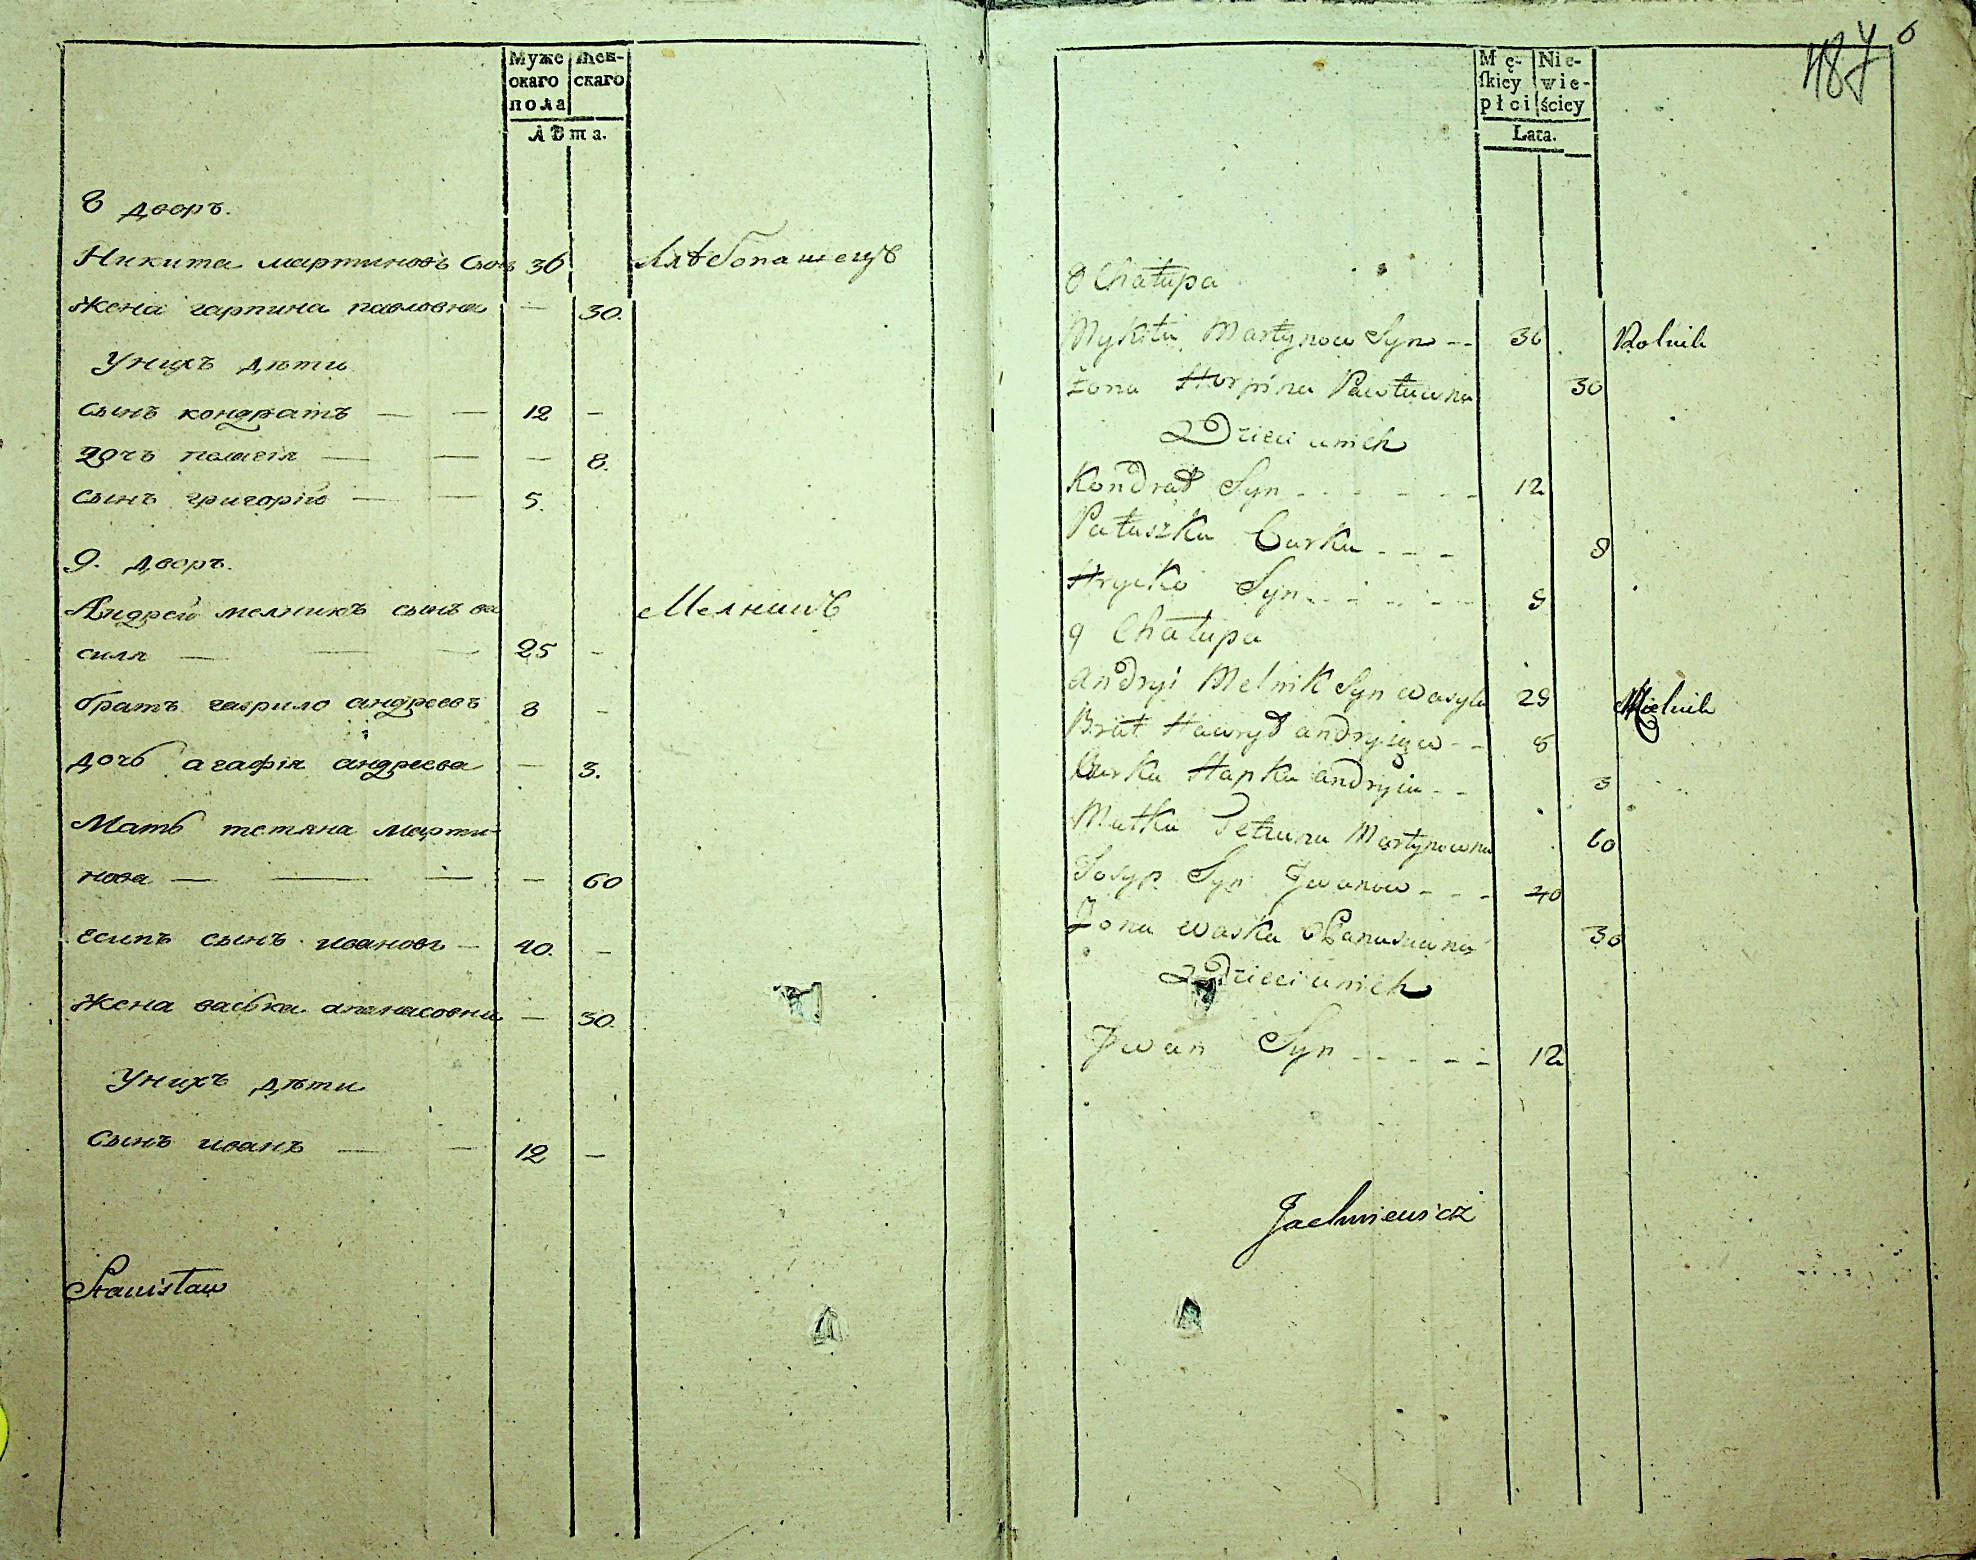 Муже
скаго
пола
Жен-
скаго
Лѣта.
8 дворъ.
Никита мартиновъ сынъ 36 Хлѣбопашецъ
жена гарпина павловна — 30.
Унихъ дѣти
сынъ кондратъ — — 12 —
дочъ палагія — — — 8.
сынъ григорій — — 5.
9. дворъ.
Андрей мелникъ сынъ ва Мелникъ
силя — — — 25 —
братъ гаврило андреевъ 8 —
дочь агафія андреева — 3.
Мать тетяна марти-
нова — — — — 60
есипъ сынъ ивановъ — 40. —
жена васька апанасовна — 30.
Унихъ дѣти
сынъ иванъ — — 12 —
Stanisław
487
6
Mę-
skiey
płci
Nie-
wie-
ściey
Lata.
8 Chałupa
Mykita Martynow Syn -- 36 Rolnik
żona Horpina Pawłuwna 30
Dzieci unich
Kondrat Syn - - - - - - 12
Pałaszka Curka - - - 8
Hrycko Syn - - - - - 5
9 Chałupa
Andryi Melnik Syn wasyla 25 Mielnik
Brat Hawryło andryiow - - 8
Curka Hapka andryiu - - 3
Matka Tetiana Martynowna 60
Josyp Syn Jwanow - - - 40
Żona waska Panasuwna 30
Dzieci unich
Jwan Syn - - - - - 12
Jachniewicz